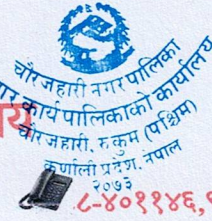 चौरजहारी नगरपालिका
कार्यपालिकाको कार्यालय
चौरजहारी, रुकुम (पश्चिम)
कर्णाली प्रदेश, नेपाल
२०७३
८-४०११४६,